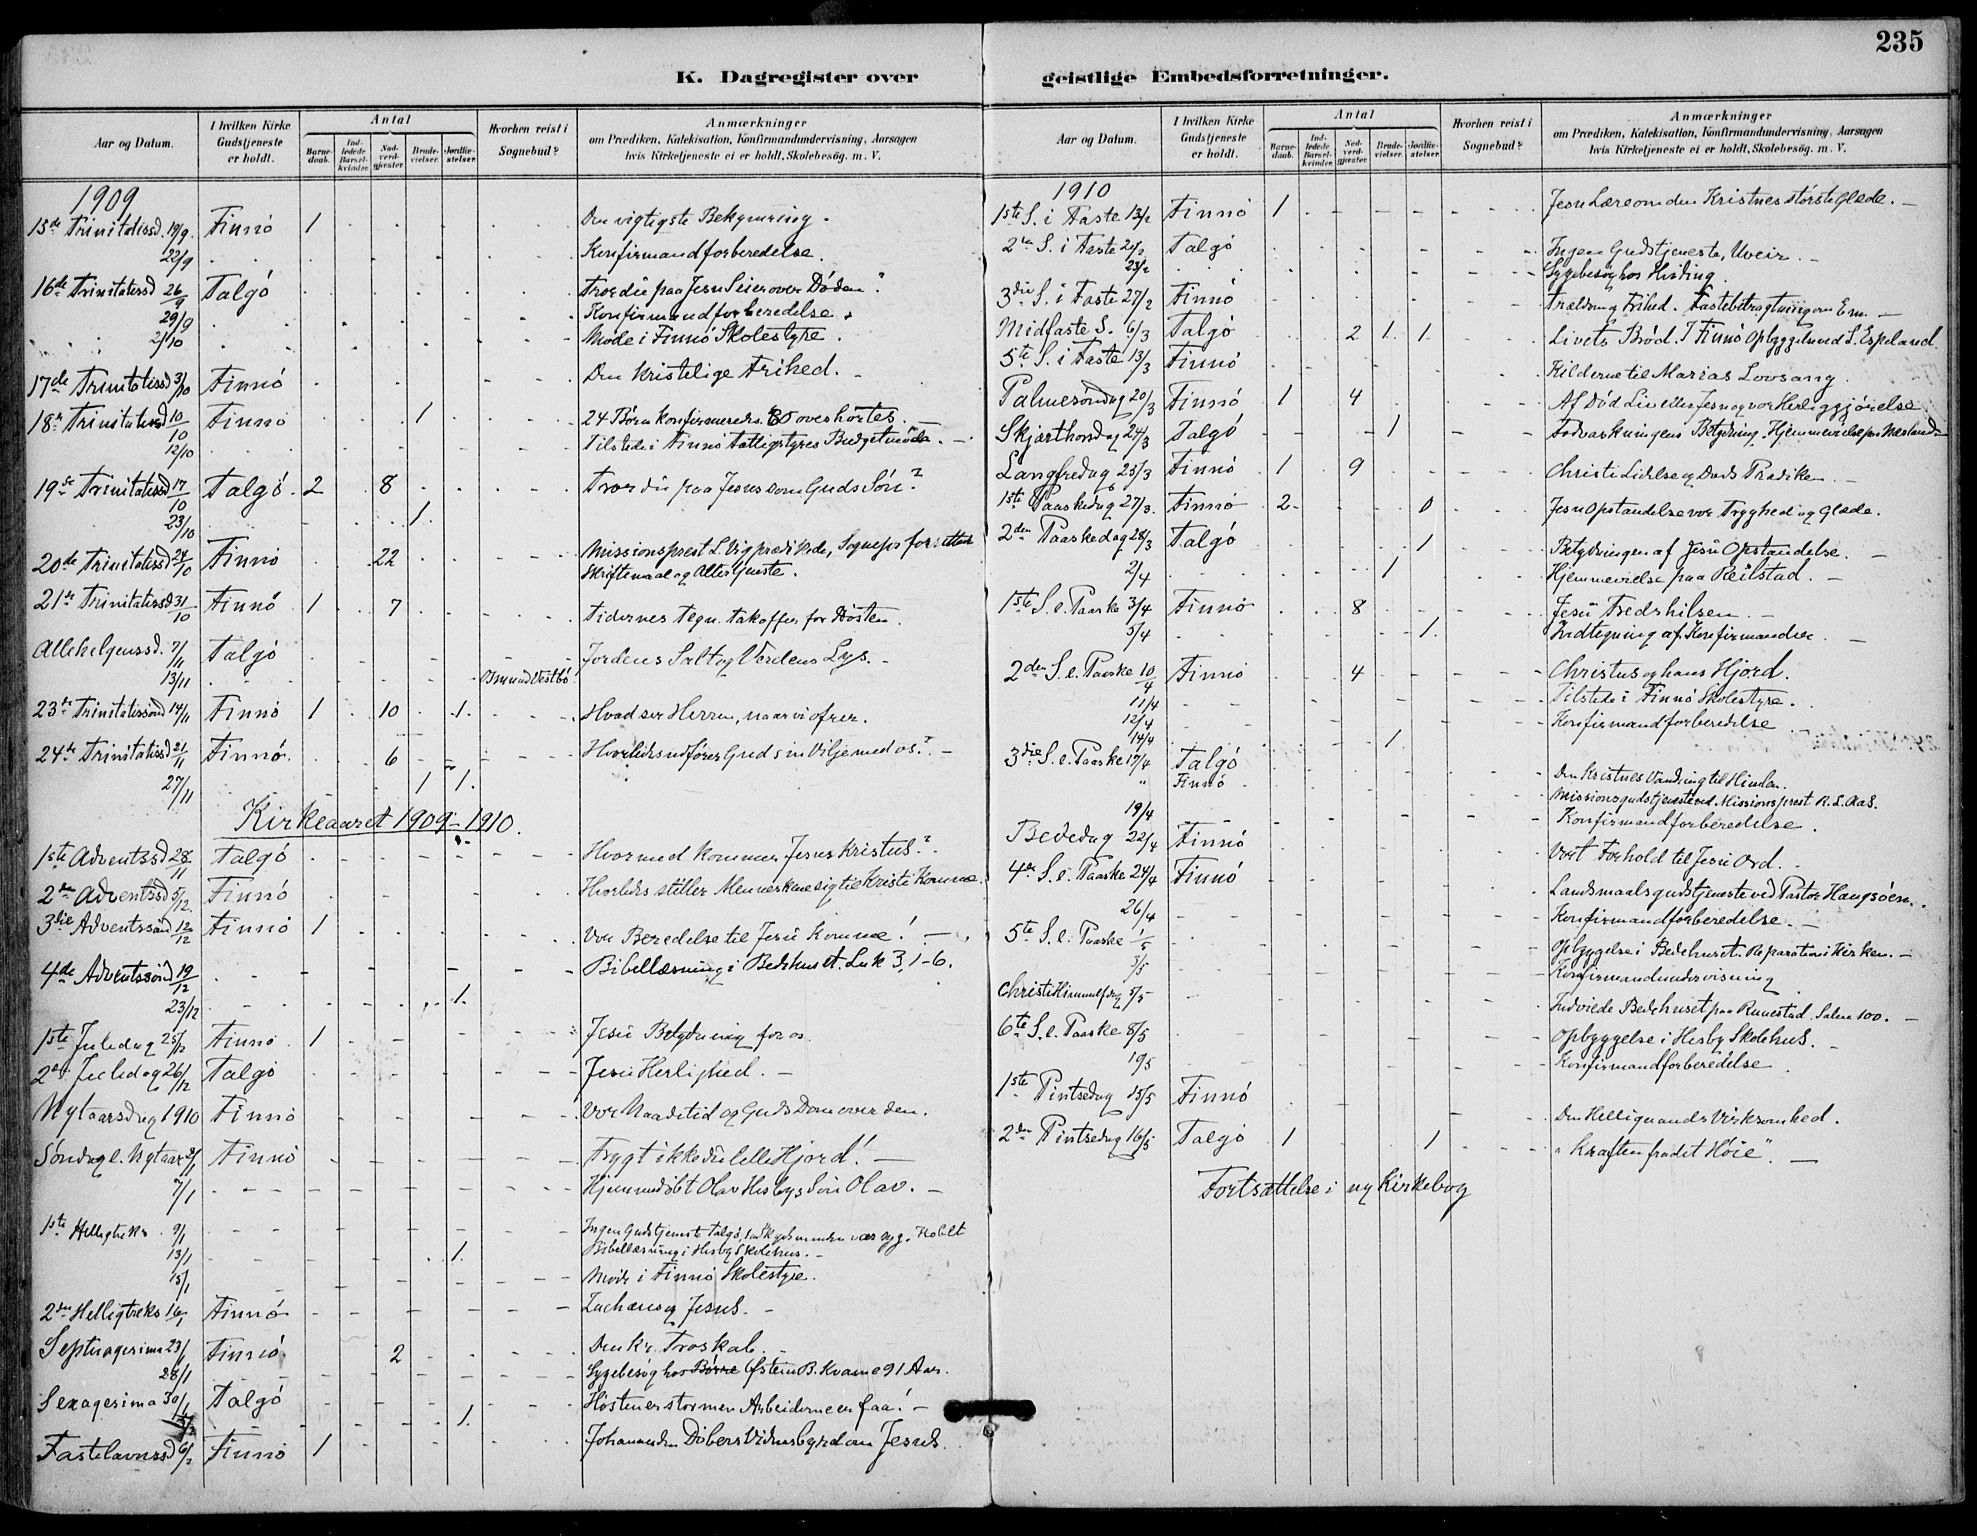 235
K. Dagregister over
geistlige Embedsforretninger.
Aar og Datum. I hvilken Kirke Gudstjeneste er holdt. Antal Barnedaab. Indledede Barselkvinder. Nadverdgjæster. Brudevielser. Jordfæstelser. Hvorhen reist i Sognebud? Anmærkninger om Prædiken, Katekisation, Konfirmandundervisning, Aarsagen hvis Kirketjeneste ei er holdt, Skolebesøg. m. V.
1909
15de Trinitatissd. 19/9. Finnö 1 Den vigtigste Bekymring.
22/9 Konfirmandforberedelse.
16de Trinitatissd 26/9 Talgö Tror du paa Jesu Seier over Döden?
29/9 Konfirmandforberedelse.
2/10 Möde i Finnö Skolestyre.
17de Trinitatissd 3/10 Finnö Den kristelige Frihed. -
18de Trinitatissd 10/10 Finnö 1 24 Börn konfirmeredes. overhörtes.
12/10 Tilstede i Finnö Fattigstyres Budgetmöde. -
19de Trinitatissd 17/10 Talgö. 2 8 Tror du paa Jesus som Guds Sön?
23/10 1.
20de Trinitatissd 24/10 Finnö 22 Missionsprest L. Vig prædikede, Sognepr forrettet
Skriftemaal og Altertjeneste.
21de Trinitatissd 31/10 Finnö 1 7 Tidernes Tegn. Takoffer for Hösten.
Allehelgenssd. 7/11 Talgö Jordens Salt og Verdens Lys. -
13/11 Osmund Vestbö.
23de Trinitatissönd 14/11 Finnö 1 10 1. Hvad ser Herren, naar vi ofrer.
24de Trinitatissd 21/11 Finnö. 6 Hvorledes udförer Gud sin Vilje med os? -
27/11 1 1.
Kirkeaaret 1909-1910.
1ste Adventssd 28/11 Talgö Hvormed kommer Jesus Kristus?
2den Adventssd 5/12. Finnö Hvorledes stiller Menneskene sig til Kristi Komme.
3die Adventssönd 12/12 Finnö 1 Vor Beredelse til Jesu Komme! -
4de Adventssönd 19/12 Bibellæsning i Bedehuset. Luk 3, 1-6.
23/12 1.
1ste Juledag 25/12 Finnö 1 Jesu Betydning for os
2den Juledag 26/12 Talgö Jesu Herlighed. -
Nytaarsdag 1910 Finnö Vor Naadetid og Guds Dom over den.
Söndag e. Nytaar 2/1 Finnö Frygt ikke du lille Hjord! -
7/1 Hjemmedöbt Olav Hesbys Sön Olav. -
1ste Helligtrek. 9/1 Ingen Gudstjeneste Talgö, Skydsmanden var syg. Holdt
13/1 1. Bibellæsning i Hesby Skolehus. -
15/1 Möde i Finnö Skolestyre.
2den Helligtreks 16/1 Finnö Zachæus og Jesus. -
Septuagesima 23/1 Finnö. 2 Den kr. Troskab.
28/1 Sygebesög hos Østen B. Kvame 91 Aar.
Sexagesima 30/1 Talgö Hösten er stor men Arbeiderne er faa! -
1.
Fastelavnssd 6/2 Finnö 1 Johannes den Döbers Vidnesbyrd om Jesus.
Aar og Datum. I hvilken Kirke Gudstjeneste er holdt. Antal Barnedaab. Indledede Barselkvinder. Nadverdgjæster. Brudevielser. Jordfæstelser. Hvorhen reist i Sognebud? Anmærkninger om Prædiken, Katekisation, Konfirmandundervisning, Aarsagen hvis Kirketjeneste ei er holdt, Skolebesøg. m. V.
1910
1ste S. i Faste 13/2 Finnö 1 Jesu Lære om den Kristnes störste Glæde. -
2den S. i Faste 20/2 Talgö Ingen Gudstjeneste, Uveir. -
23/2 Sygebesög hos
3die S. i Faste 27/2 Finnö Trældom og Frihed. Fastebetragtning om Em. -
Midfaste S. 6/3 Talgö 2 1. 1. Livets Bröd. I Finnö Opbyggelse ved S. Espeland
5te S. i Faste 13/3 Finnö Kilderne til Marias Lovsang.
Palmesöndag 20/3 Finnö 1 4 Af Död Liv eller Jesu og vor Herliggjörelse
Skjærthorsdag 24/3 Talgö 1 Fodvaskningens Betydning. Hjemmevielse paa
Langfredag 25/3 Finnö 1 9 Christi Lidelse og Döds Prædiken. -
1ste Paaskedag 27/3. Finnö 2 0 Jesu Opstandelse vor Tryghed og Glæde.
2den Paaskedag 28/3 Talgö 1 Betydningen af Jesu Opstandelse. -
2/4 1 Hjemmevielse paa Reilstad. -
1ste S. e. Paaske 3/4 Finnö 8 Jesu Fredshilsen -
5/4 1. Indtegning af Konfirmander -
2den S. e. Paaske 10/4 Finnö 4 Christus og hans Hjord.
11/4 Tilstede i Finnö Skolestyre.
12/4 Konfirmandforberedelse
14/4 1
3die S. e. Paaske 17/4 Talgö Den Kristnes Vandring til Himlen.
" Finnö Missionsgudstjeneste ved Missionsprest R. L. Aas.
19/4 Konfirmandforberedelse.
Bededag 22/4 Finnö Vort Forhold til Jesu Ord. -
4de S. e. Paaske 24/4 Finnö Landsmaalsgudstjeneste ved Pastor Haugsöen.
26/4 Konfirmandforberedelse. -
5te S. e. Paaske 1/5 Opbyggelse i Bedehuset. Reparation i Kirken. -
3/5 Konfirmandundervisning
Christi Himmelfdag 5/5 Indviede Bedehuset paa Salme 100. -
6te S. e. Paaske 8/5 Opbyggelse i Hesby Skolehus. -
10/5 Konfirmandforberedelse
1ste Pintsedag 15/5 Finnö Den Helligaands Virksomhed.
2den Pintsedag 16/5 Talgö 1 1 "Kraften fra det Höie". -
Fortsættelse i ny Kirkebog